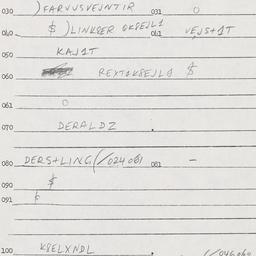 030 )FARVUSVEJNTIR 031 O
040 $ )LINKSER OKSEJL1 041 VEJS+1T
050 KAJ1T
060 REXT1KSEJL1 $
061 O
070 DERALDZ .
080 DERS+LING(/024061 081 –
090 $
091 $
100 KSELXNDL .